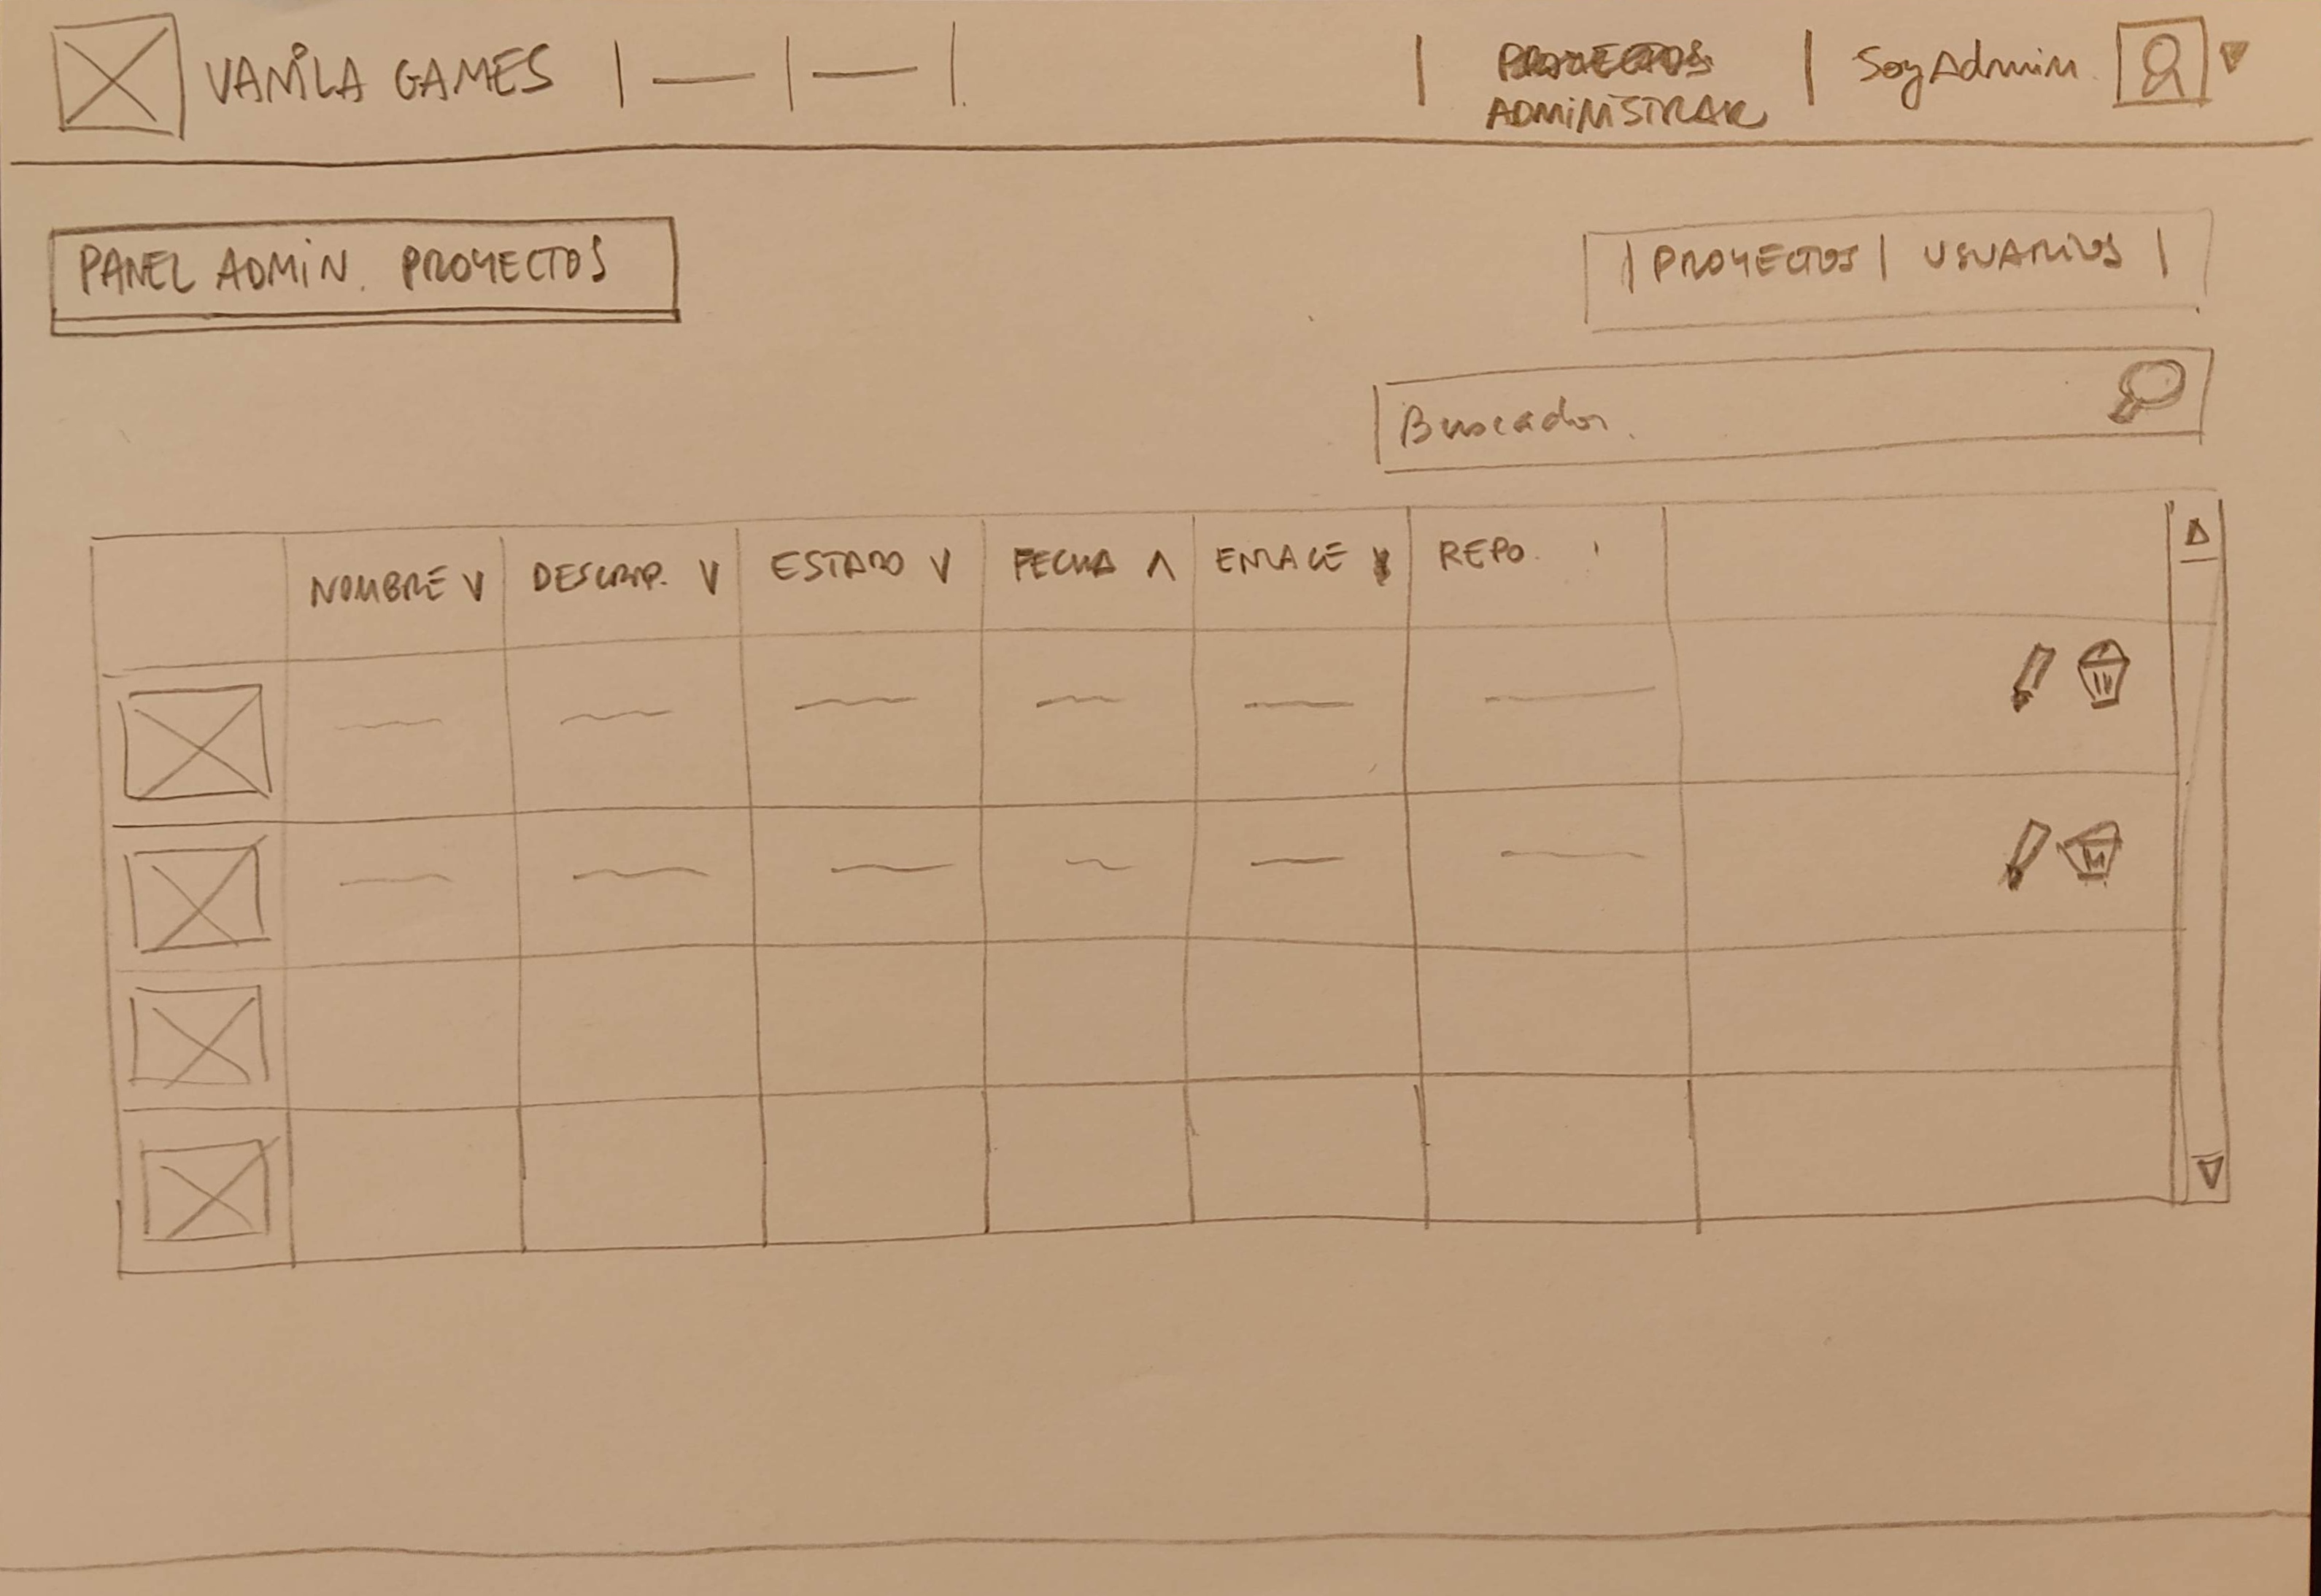 VANILA GAMES
PROYECTOS
ADMINISTRAR
SoyAdmin.
PANEL ADMIN. PROYECTOS
| PROYECTOS | USUARIOS |
Buscador.
NOMBRE V
DESCRIP. V
ESTADO V
FECHA ʌ
ENLACE
REPO.